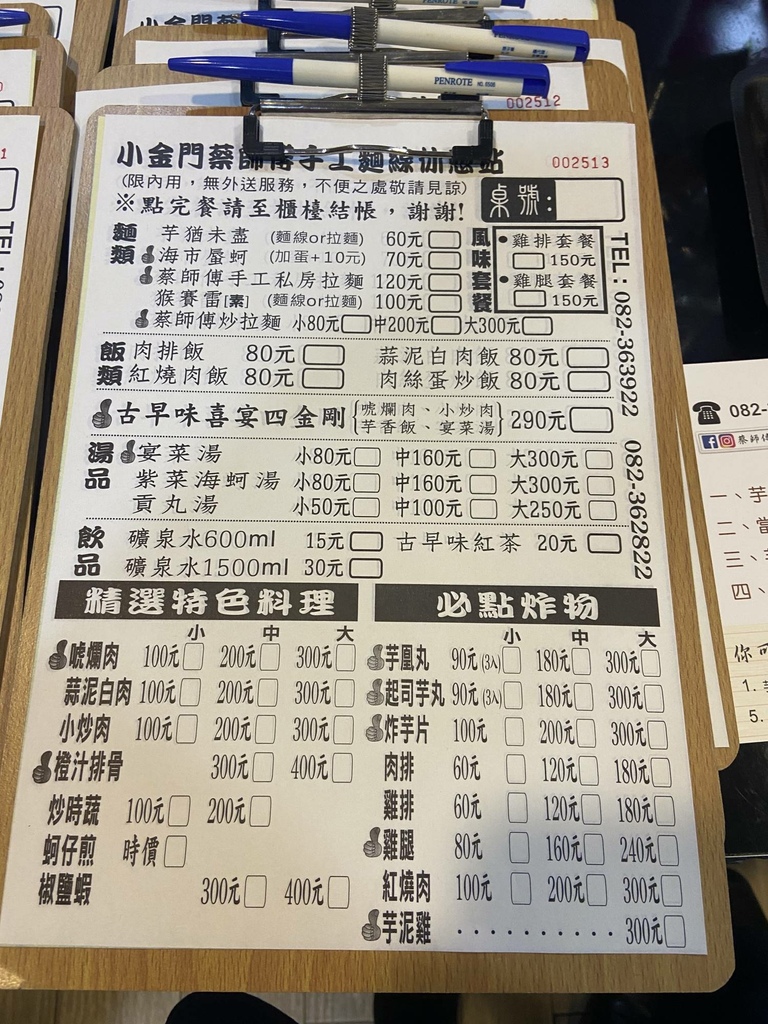 PENROTE NO.6506
002512
小金門蔡師傅手工麵線休憩站
002513
(限內用，無外送服務，不便之處敬請見諒)
桌號：
※點完餐請至櫃檯結帳，謝謝!
麵類
芋猶未盡 (麵線or拉麵) 60元
海市蜃蚵 (加蛋+10元) 70元
蔡師傅手工私房拉麵 120元
猴賽雷[素] (麵線or拉麵) 100元
蔡師傅炒拉麵 小80元 中200元 大300元
風味套餐
•雞排套餐
150元
•雞腿套餐
150元
TEL：082-363922 082-362822
飯類
肉排飯 80元 蒜泥白肉飯 80元
紅燒肉飯 80元 肉絲蛋炒飯 80元
古早味喜宴四金剛 唬爛肉、小炒肉 芋香飯、宴菜湯 290元
湯品
宴菜湯 小80元 中160元 大300元
紫菜海蚵湯 小80元 中160元 大300元
貢丸湯 小50元 中100元 大250元
飲品
礦泉水600ml 15元 古早味紅茶 20元
礦泉水1500ml 30元
精選特色料理
小 中 大
唬爛肉 100元 200元 300元
蒜泥白肉 100元 200元 300元
小炒肉 100元 200元 300元
橙汁排骨 300元 400元
炒時蔬 100元 200元
蚵仔煎 時價
椒鹽蝦 300元 400元
必點炸物
小 中 大
芋凰丸 90元(3入) 180元 300元
起司芋丸 90元(3入) 180元 300元
炸芋片 100元 200元 300元
肉排 60元 120元 180元
雞排 60元 120元 180元
雞腿 80元 160元 240元
紅燒肉 100元 200元 300元
芋泥雞 ············ 300元
082-
蔡師傅
一、芋
二、當
三、
四、
你可
1.
5.